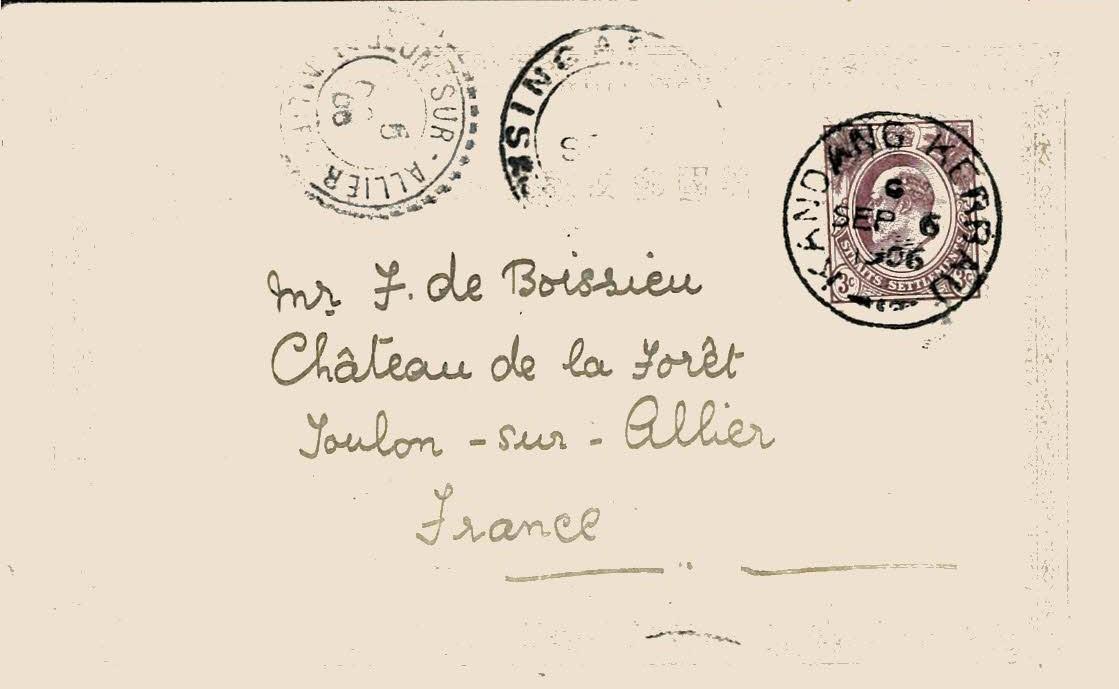 TOULON-SUR-ALLIER
5
06
SINGAP
KANDANG KERBAU
6
SEP 6
1906
STRAITS SETTLEMENTS
3c 3c
Mr F. de Boissieu
Château de la Forêt
Toulon - sur - Allier
France